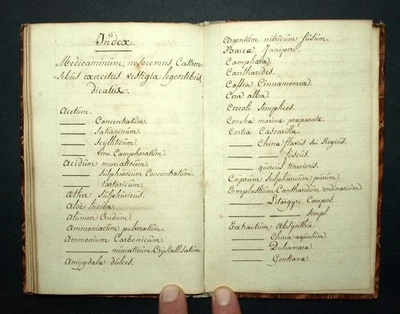 Index
Medicaminum, nosocomiis Castren-
sibus exercitus vestigia legentibus
dicatus.
Acetum.
——— Concentratum
——— Saturninum
——— Scylliticum
——— Vini Camphoratum
Acidum muriaticum
——— Sulphuricum Concentratum
——— tartaricum
Æther Sulphuricus.
Aloe lucida
Alumen Crudum.
Ammoniacum pulveratum
Ammonium Carbonicum
——— muriaticum Crystallisatum
Amygdala dulces.
Argentum nitricum fusum.
Bacca Juniperi.
Camphora.
Cantharides.
Cassia Cinnamomea.
Cera alba.
Cereoli Simplices.
Concha marina praparata.
Cortex Cascarilla.
——— China flavus seu Regius.
——— fuscus.
——— quercus tenerioris.
Cuprum Sulphuricum purum.
Emplastrum Cantharidum ordinarium
——— Litargyri Compos.
——— Simpl.
Extractum Absynthii.
——— China
——— Dulcamara
——— Gentiana